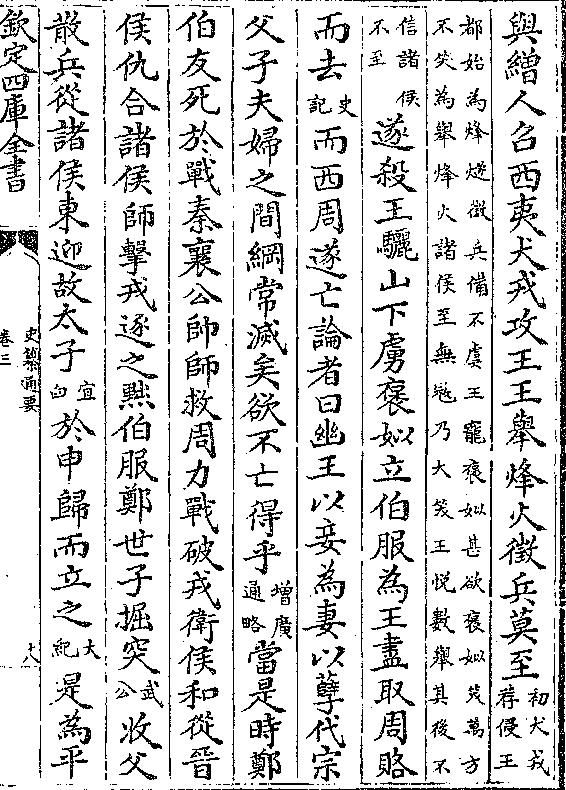 與繒人召西夷犬戎攻王王舉烽火徵兵莫至初犬戎荐侵王
都始為烽燧徵兵備不虞王寵褒姒甚欲褒姒笑萬方
不笑為舉烽火諸侯至無寇乃大笑王悅數舉其後不
信諸侯不至遂殺王驪山下虜褒姒立伯服為王盡取周賂
而去史記而西周遂亡論者曰幽王以妾為妻以孽代宗
父子夫婦之間綱常滅矣欲不亡得乎增廣通略當是時鄭
伯友死於戰秦襄公帥師救周力戰破戎衛侯和從晉
侯仇合諸侯師擊戎逐之黜伯服鄭世子掘突武公收父
散兵從諸侯東迎故太子宜臼於申歸而立之大紀是為平
欽定四庫全書
史纂通要
卷三
十八